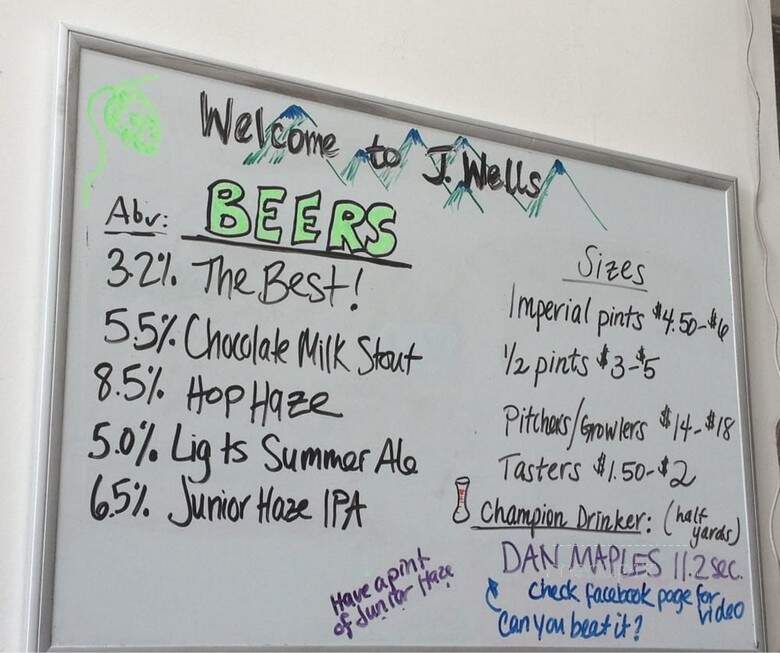 Welcome to J. Wells
Abv: BEERS
3.2% The Best!
5.5% Chocolate Milk Stout
8.5% Hop Haze
5.0% Lig ts Summer Ale
6.5% Junior Haze IPA
Have a pint
of Junior Haze
Sizes
Imperial pints $4.50-$6
1/2 pints $3-$5
Pitchers/Growlers $14-$18
Tasters $1.50-$2
Champion Drinker: (half
yards)
DAN MAPLES 11.2 sec.
check facebook page for
video
Can you beat it?